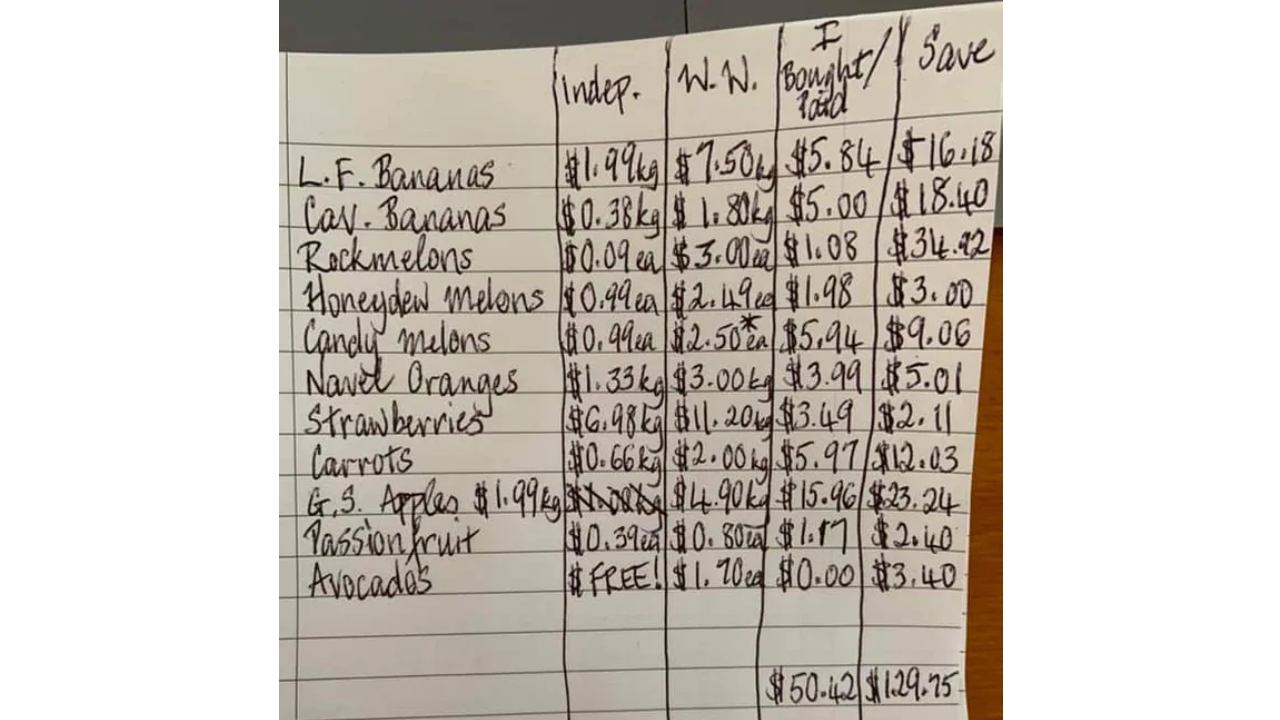 Indep. W.W. I Bought/Paid Save
L.F. Bananas $1.99kg $7.50kg $5.84 $16.18
Cav. Bananas $0.38kg $1.80kg $5.00 $18.40
Rockmelons $0.09ea $3.00ea $1.08 $34.92
Honeydew Melons $0.99ea $2.49ea $1.98 $3.00
Candy melons $0.99ea $2.50*ea $5.94 $9.06
Navel Oranges $1.33kg $3.00kg $3.99 $5.01
Strawberries $6.98kg $11.20kg $3.49 $2.11
Carrots $0.66kg $2.00kg $5.97 $12.03
G.S. Apples $1.99kg $4.90kg $15.96 $23.24
Passionfruit $0.39ea $0.80ea $1.17 $2.40
Avocados $FREE! $1.70ea $0.00 $3.40
$50.42 $129.75